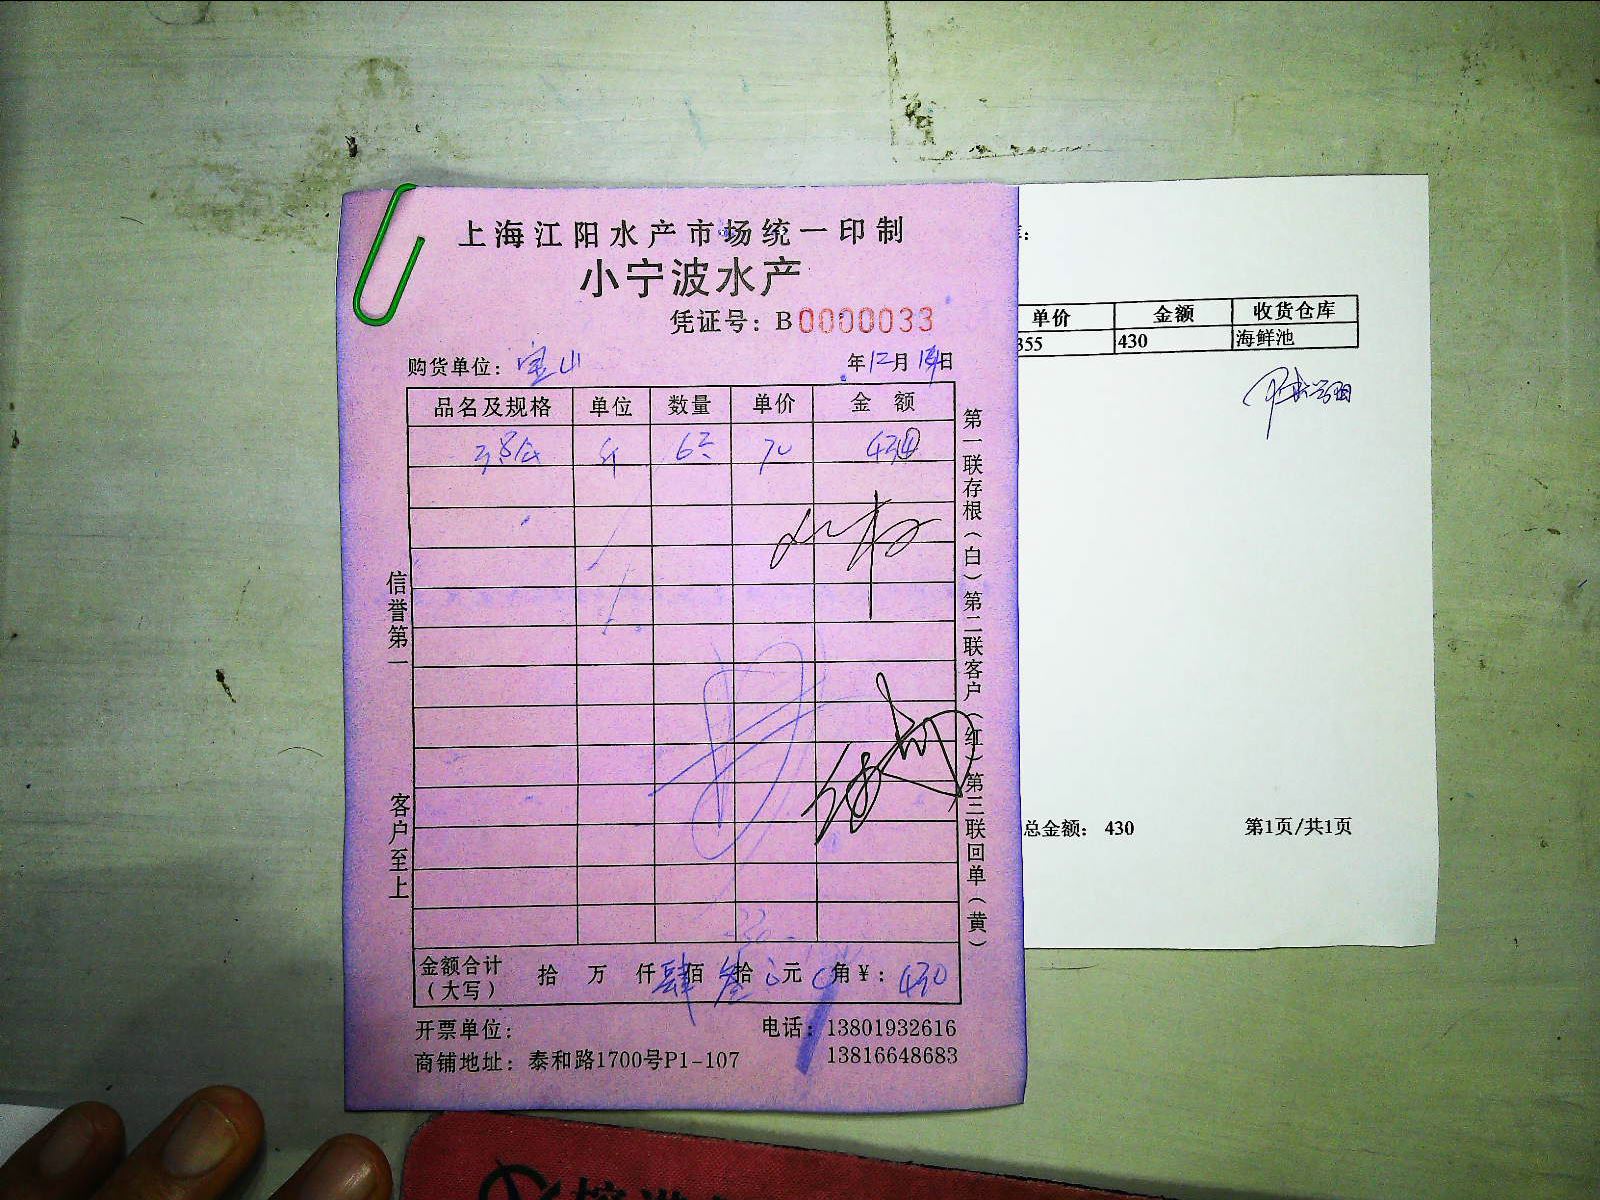 上海江阳水产市场统一印制
小宁波水产
凭证号：B0000033
购货单位：宝山 年12月 日
品名及规格 单位 数量 单价 金额
斤 70 430
信誉第一
客户至上
第一联存根（白）第二联客户（红）第三联回单（黄）
金额合计（大写） 拾 万 仟肆佰叁拾 元 角￥：430
开票单位： 电话：13801932616
商铺地址：泰和路1700号P1-107 13816648683
单价 金额 收货仓库
355 430 海鲜池
总金额： 430 第1页/共1页